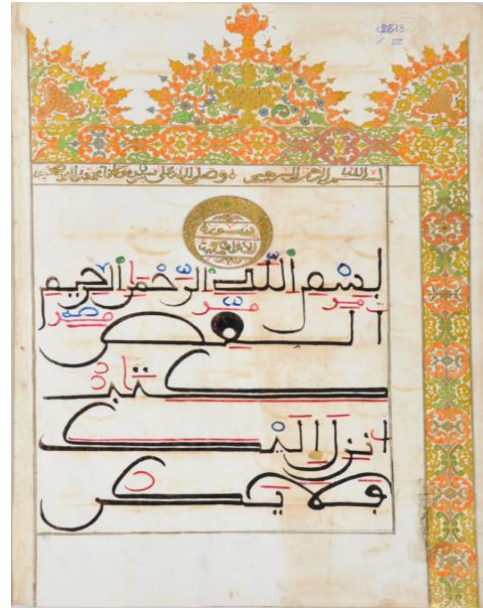 بسم الله الرحمن الرحيم وصلى الله على
سورة
الأعراف
بِسْمِ اللَّهِ الرَّحْمَٰنِ الرَّحِيمِ
المص
كتب
انزل اليك
فلا يكن